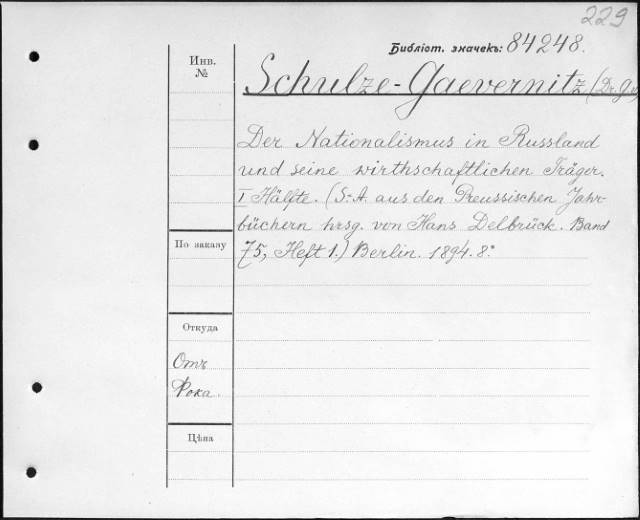 229
Библіот. значекъ: 84248.
Инв.
№
Schulze-Gaevernitz (Dr. G. v.
Der Nationalismus in Russland
und seine wirthschaftlichen Träger.
I Hälfte. (S.-A. aus den Preussischen Jahr-
büchern hrsg. von Hans Delbrück. Band
75, Heft 1.) Berlin. 1894. 8.°
По заказу
Откуда
Отъ
Фока.
Цѣна